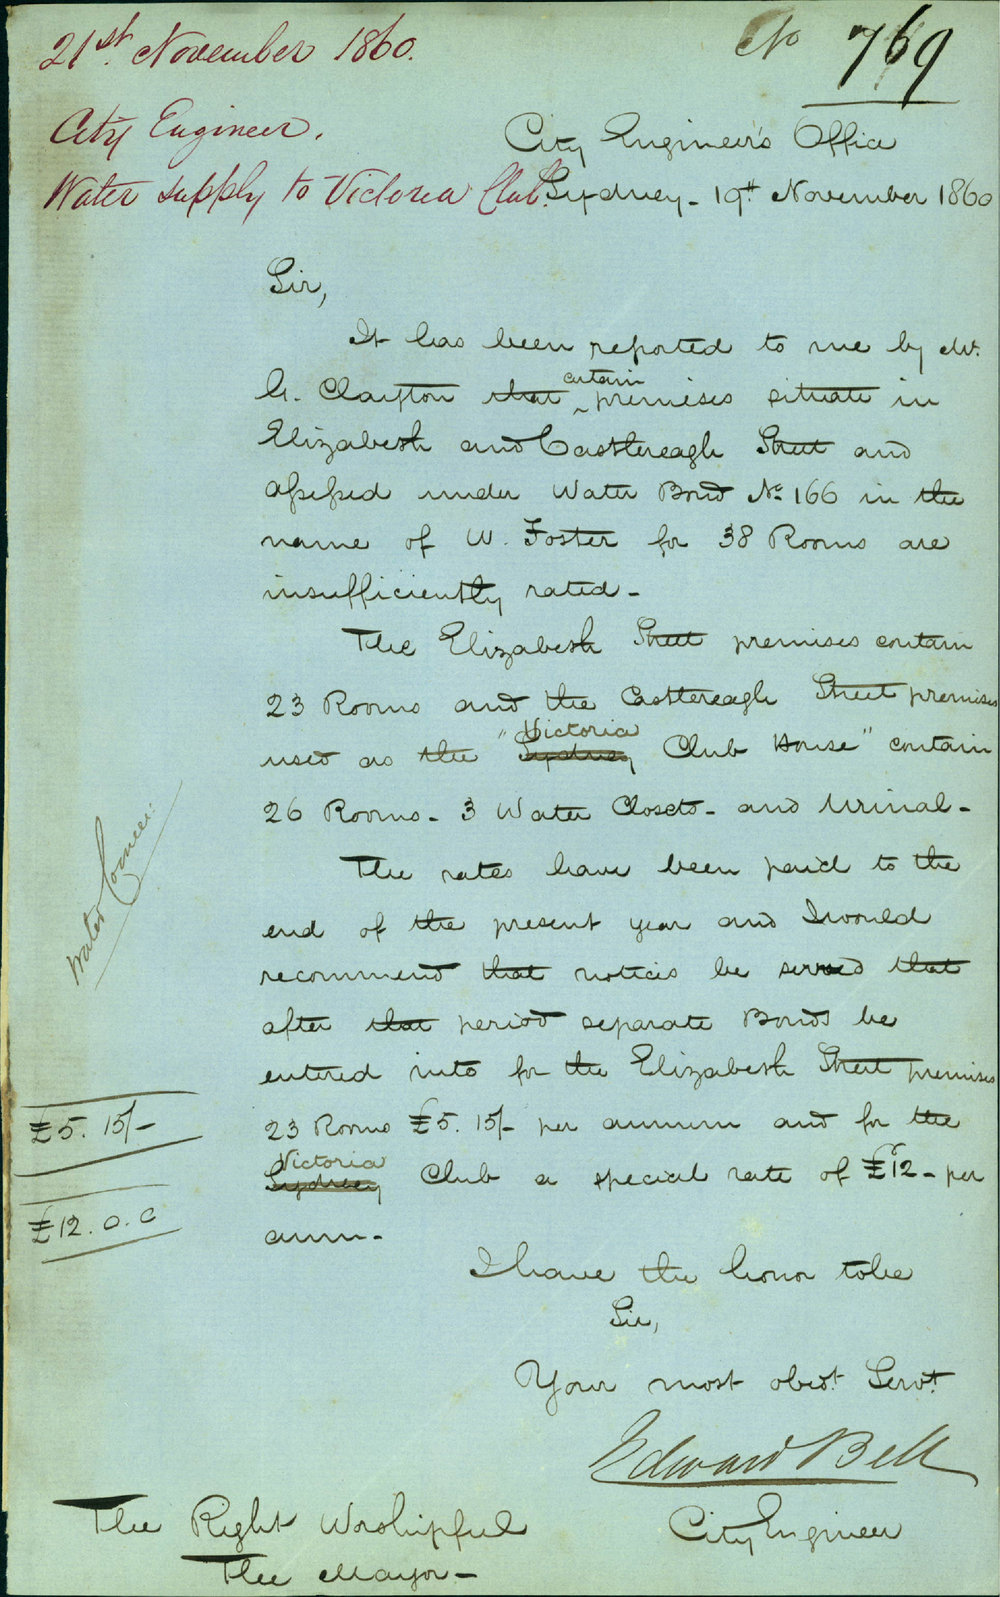 21st. November 1860.
No 769
City Engineer.
Water supply to Victoria Club.
City Engineer's Office
Sydney - 19th November 1860
Sir,
It has been reported to me by Mr.
G. Clayton that certain premises situate in
Elizabeth and Castlereagh Street and
assessed under Water Bond No. 166 in the
name of W. Foster for 38 Rooms are
insufficiently rated -
The Elizabeth Street premises contain
23 Rooms and the Castlereagh Street premises
used as the "Sydney Victoria Club House" contain
26 Rooms - 3 Water Closets - and Urinal -
The rates have been paid to the
end of the present year and I would
recommend that notices be served that
after that period separate Bonds be
entered into for the Elizabeth Street premises
23 Rooms £5. 15/- per annum and for the
Sydney Victoria Club a special rate of £12 - per
ann -
Water Commee.
£5. 15/-
£12. 0. 0
I have the honor to be
Sir,
Your most obedt. Servt.
Edward Bell
City Engineer
The Right Worshipful
The Mayor -